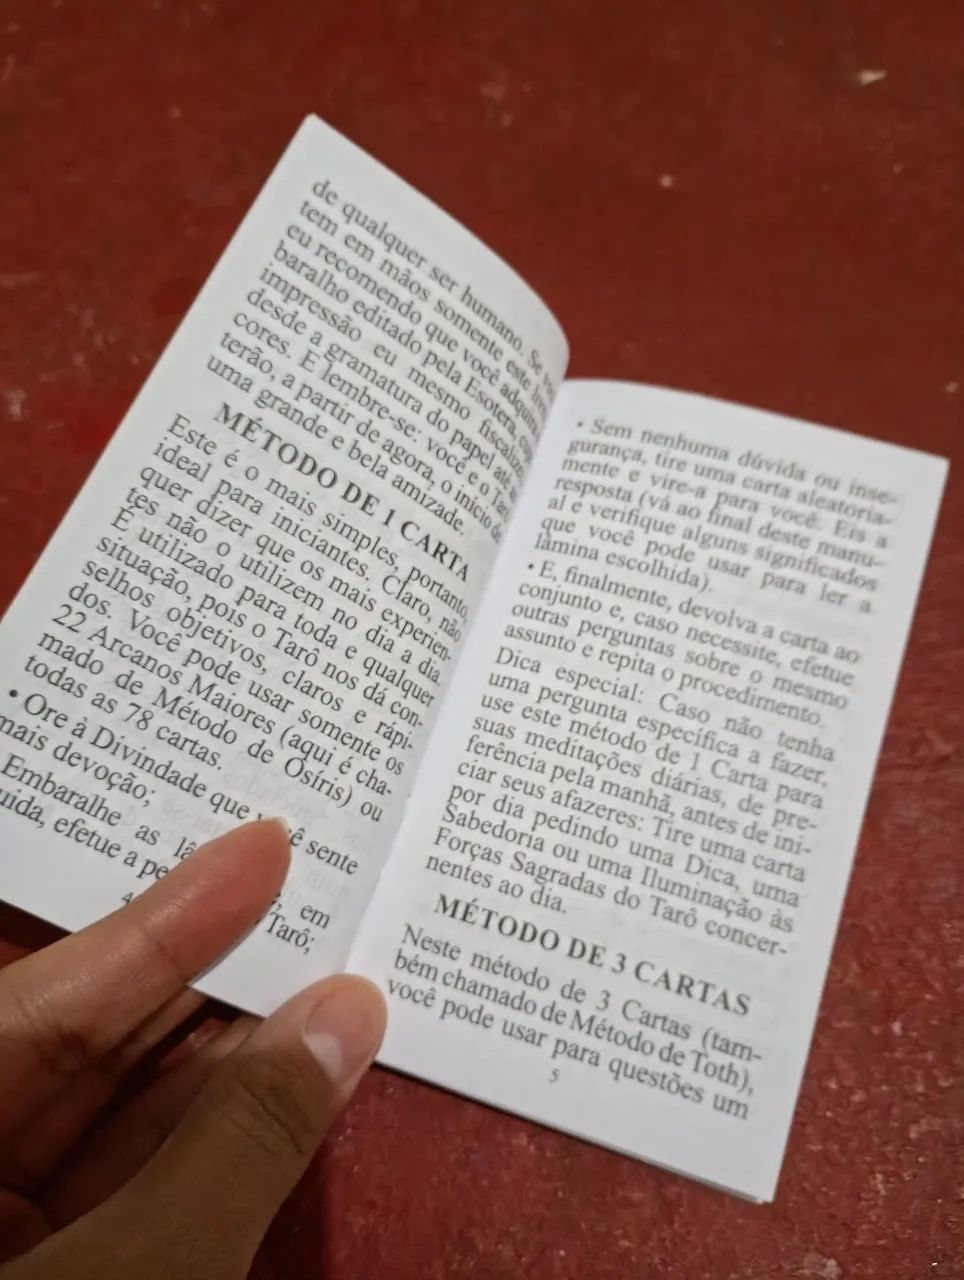 de qualquer ser humano. Se vo
tem em mãos somente este livr
eu recomendo que você adquir
baralho editado pela Esotera, cu
impressão eu mesmo fiscalize
desde a gramatura do papel até as
cores. E lembre-se: você e o Tarô
terão, a partir de agora, o início de
uma grande e bela amizade.
MÉTODO DE 1 CARTA
Este é o mais simples, portanto,
ideal para iniciantes. Claro, não
quer dizer que os mais experien-
tes não o utilizem no dia a dia.
É utilizado para toda e qualquer
situação, pois o Tarô nos dá con-
selhos objetivos, claros e rápi-
dos. Você pode usar somente os
22 Arcanos Maiores (aqui é cha-
mado de Método de Osíris) ou
todas as 78 cartas.
• Ore à Divindade que você sente
mais devoção;
Embaralhe as em
uida, efetue a Tarô;
4
• Sem nenhuma dúvida ou inse-
gurança, tire uma carta aleatoria-
mente e vire-a para você. Eis a
resposta (vá ao final deste manu-
al e verifique alguns significados
que você pode usar para ler a
lâmina escolhida).
• E, finalmente, devolva a carta ao
conjunto e, caso necessite, efetue
outras perguntas sobre o mesmo
assunto e repita o procedimento.
Dica especial: Caso não tenha
uma pergunta específica a fazer,
use este método de 1 Carta para
suas meditações diárias, de pre-
ferência pela manhã, antes de ini-
ciar seus afazeres: Tire uma carta
por dia pedindo uma Dica, uma
Sabedoria ou uma Iluminação às
Forças Sagradas do Tarô concer-
nentes ao dia.
MÉTODO DE 3 CARTAS
Neste método de 3 Cartas (tam-
bém chamado de Método de Toth),
você pode usar para questões um
5